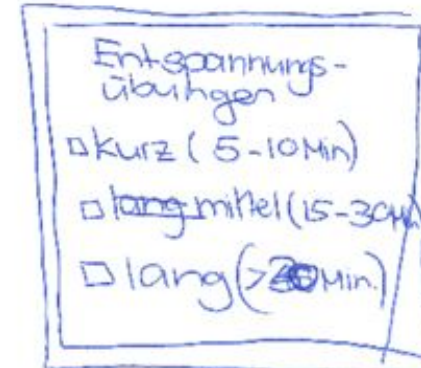 Entspannungs-
übungen
kurz (5-10 Min)
lang mittel (15-30 Min)
lang (> 30 Min.)